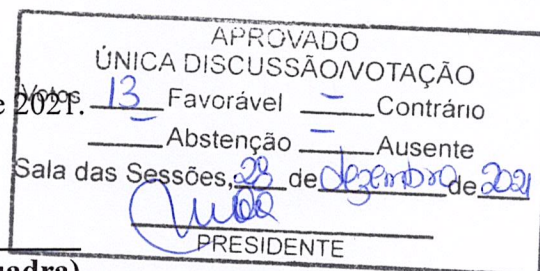 APROVADO
ÚNICA DISCUSSÃO/VOTAÇÃO
e 2021. Votos 13 Favorável - Contrário
- Abstenção - Ausente
Sala das Sessões, 28 de dezembro de 2021
PRESIDENTE
uadra)